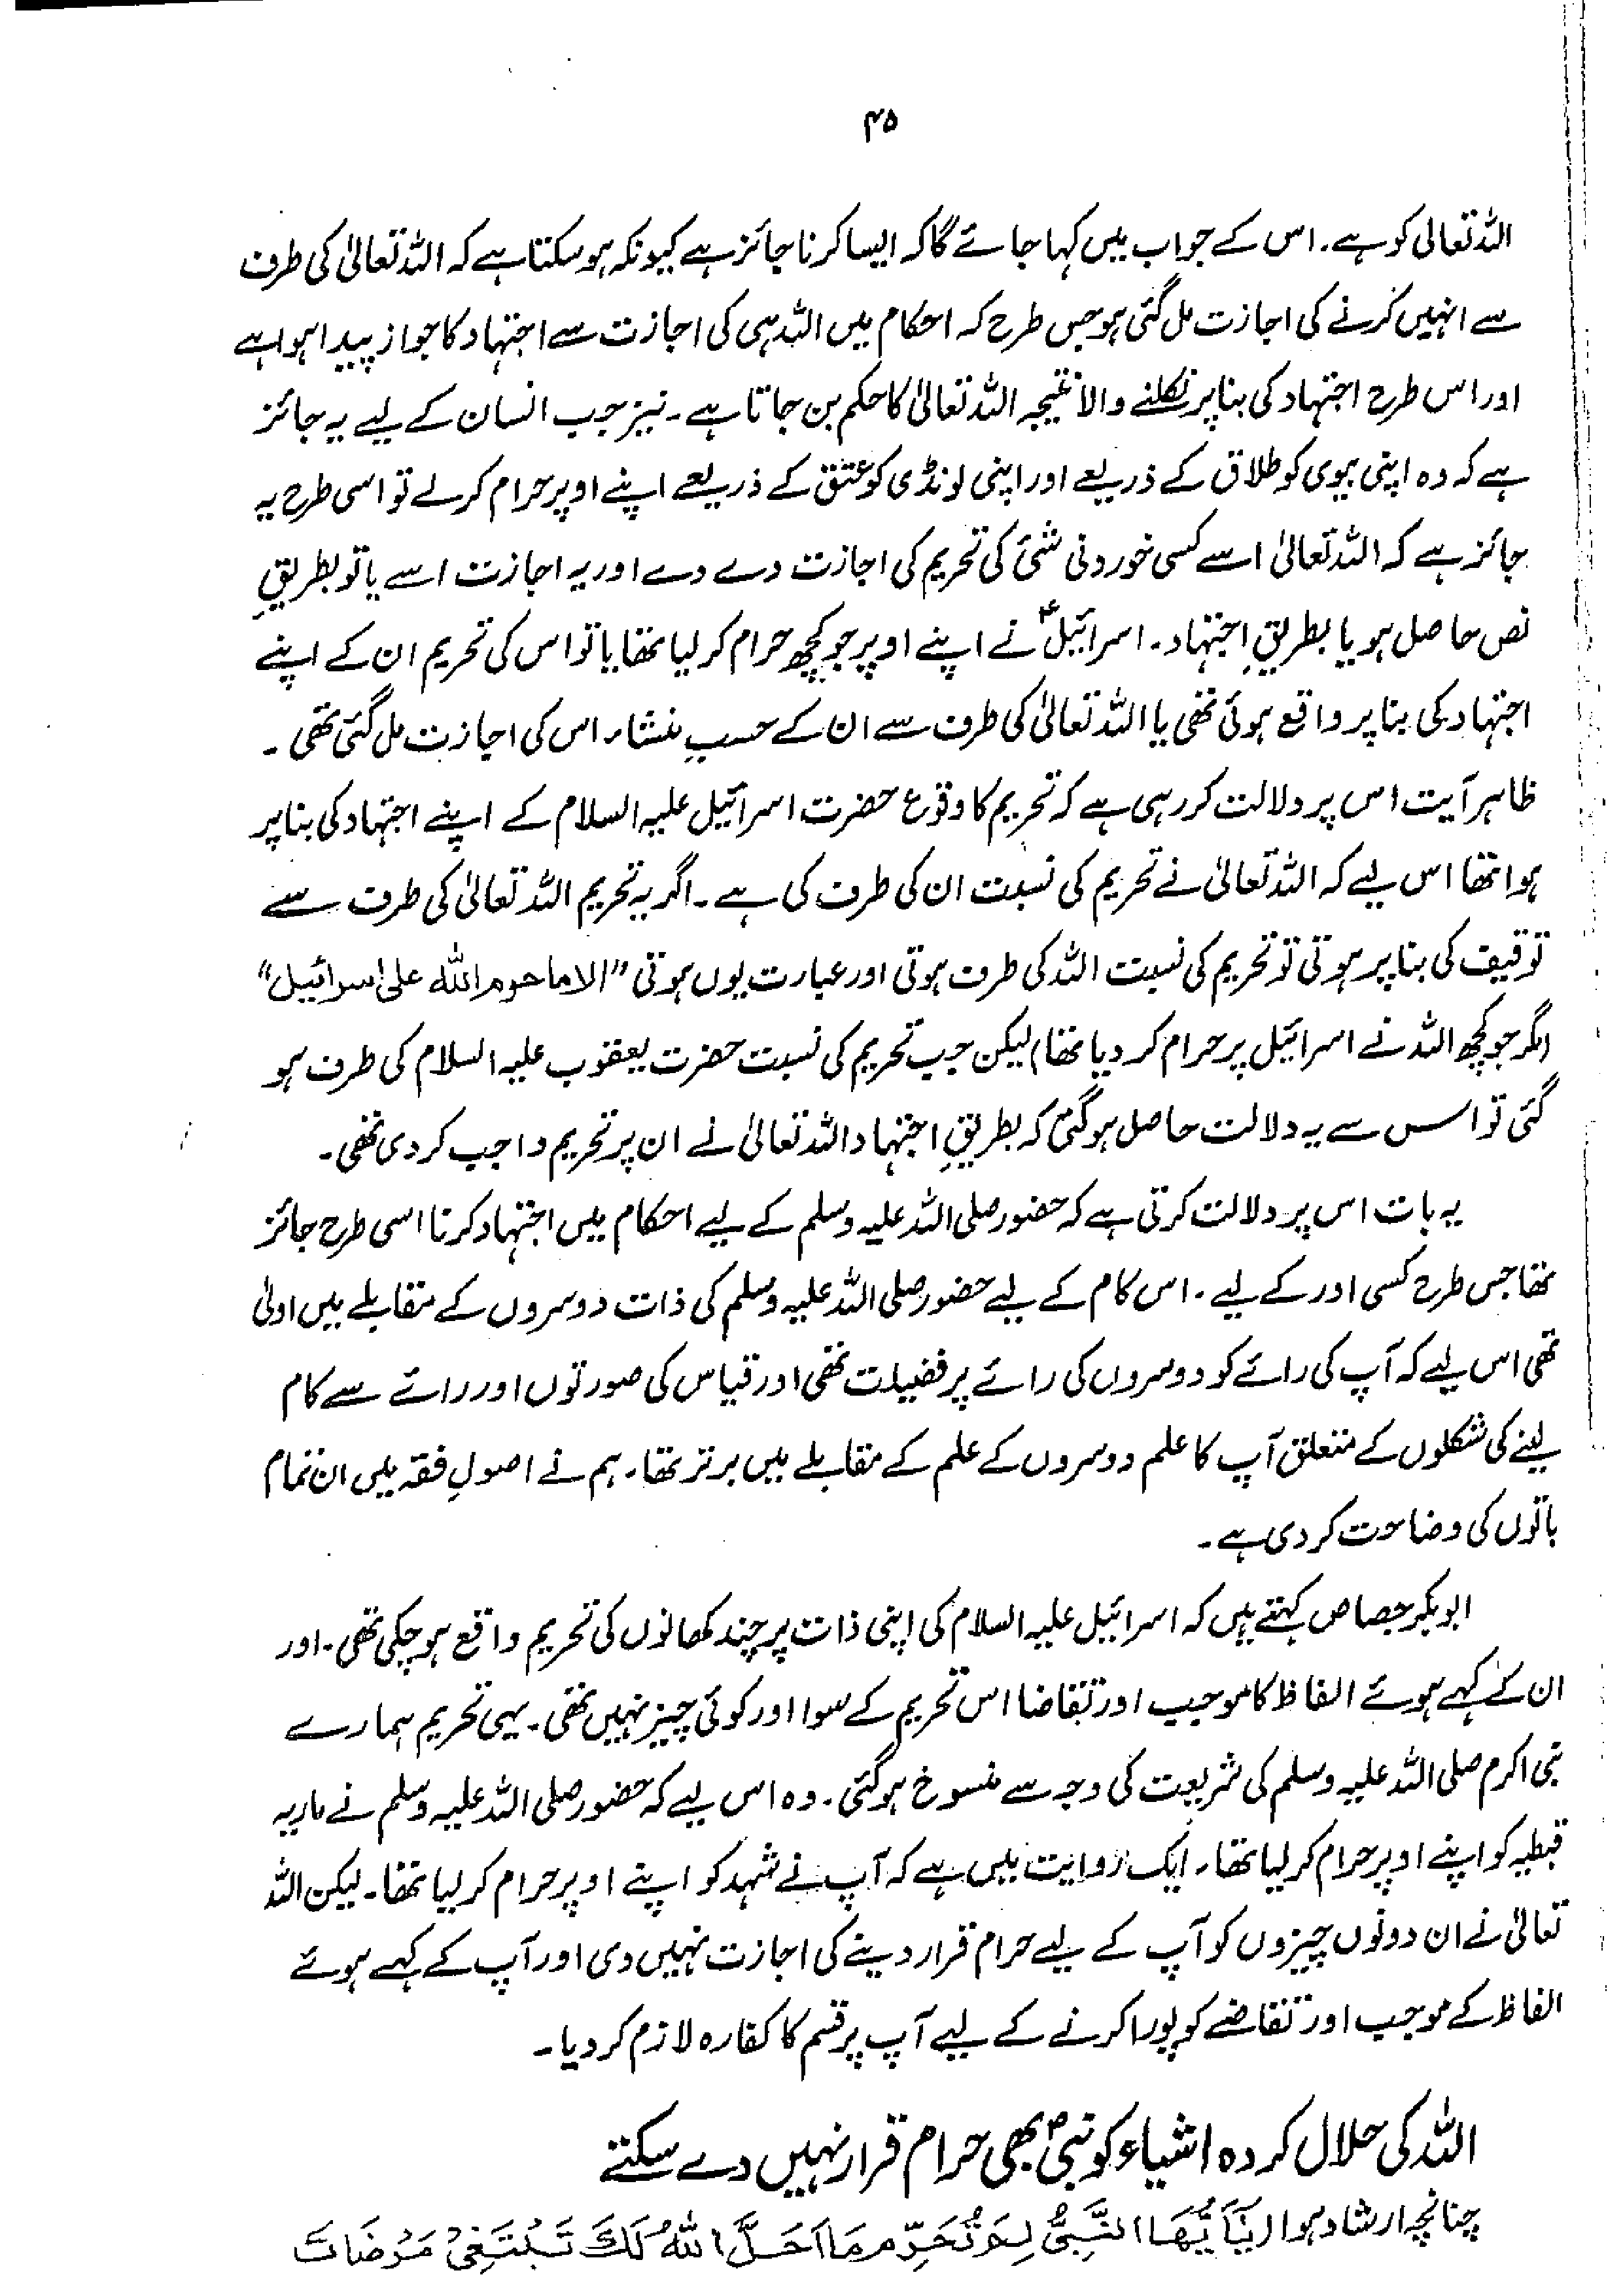 ۴۵
اللہ تعالیٰ کو ہے۔ اس کے جواب میں کہا جائے گا کہ ایسا کرنا جائز ہے کیونکہ ہو سکتا ہے کہ اللہ تعالیٰ کی طرف
سے انہیں کرنے کی اجازت مل گئی ہو جس طرح کہ احکام میں اللہ ہی کی اجازت سے اجتہاد کا جواز پیدا ہوا ہے
اور اس طرح اجتہاد کی بنا پر نکلنے والا نتیجہ اللہ تعالیٰ کا حکم بن جاتا ہے۔ نیز جب انسان کے لیے یہ جائز
ہے کہ وہ اپنی بیوی کو طلاق کے ذریعے اور اپنی لونڈی کو عتق کے ذریعے اپنے اوپر حرام کرلے تو اسی طرح یہ
جائز ہے کہ اللہ تعالیٰ اسے کسی خوردنی شئی کی تحریم کی اجازت دے دے اور یہ اجازت اسے یا تو بطریقِ
نص حاصل ہو یا بطریقِ اجتہاد۔ اسرائیلؑ نے اپنے اوپر جو کچھ حرام کر لیا تھا یا تو اس کی تحریم ان کے اپنے
اجتہاد کی بنا پر واقع ہوئی تھی یا اللہ تعالیٰ کی طرف سے ان کے حسبِ منشاء اس کی اجازت مل گئی تھی۔
ظاہر آیت اس پر دلالت کر رہی ہے کہ تحریم کا وقوع حضرت اسرائیل علیہ السلام کے اپنے اجتہاد کی بنا پر
ہوا تھا اس لیے کہ اللہ تعالیٰ نے تحریم کی نسبت ان کی طرف کی ہے۔ اگر یہ تحریم اللہ تعالیٰ کی طرف سے
توقیف کی بنا پر ہوتی تو تحریم کی نسبت اللہ کی طرف ہوتی اور عبارت یوں ہوتی "الا ما حرم اللہ علی اسرائیل"
(مگر جو کچھ اللہ نے اسرائیل پر حرام کر دیا تھا) لیکن جب تحریم کی نسبت حضرت یعقوب علیہ السلام کی طرف ہو
گئی تو اس سے یہ دلالت حاصل ہو گئی کہ بطریقِ اجتہاد اللہ تعالیٰ نے ان پر تحریم واجب کر دی تھی۔
یہ بات اس پر دلالت کرتی ہے کہ حضور صلی اللہ علیہ وسلم کے لیے احکام میں اجتہاد کرنا اسی طرح جائز
تھا جس طرح کسی اور کے لیے۔ اس کام کے لیے حضور صلی اللہ علیہ وسلم کی ذات دوسروں کے مقابلے میں اولیٰ
تھی اس لیے کہ آپ کی رائے کو دوسروں کی رائے پر فضیلت تھی اور قیاس کی صورتوں اور رائے سے کام
لینے کی شکلوں کے متعلق آپ کا علم دوسروں کے علم کے مقابلے میں برتر تھا۔ ہم نے اصولِ فقہ میں ان تمام
باتوں کی وضاحت کر دی ہے۔
ابوبکر جصاص کہتے ہیں کہ اسرائیل علیہ السلام کی اپنی ذات پر چند کھانوں کی تحریم واقع ہو چکی تھی۔ اور
ان کے کہے ہوئے الفاظ کا موجب اور تقاضا اس تحریم کے سوا اور کوئی چیز نہیں تھی۔ یہی تحریم ہمارے
نبی اکرم صلی اللہ علیہ وسلم کی شریعت کی وجہ سے منسوخ ہو گئی۔ وہ اس لیے کہ حضور صلی اللہ علیہ وسلم نے ماریہ
قبطیہ کو اپنے اوپر حرام کر لیا تھا۔ ایک روایت میں ہے کہ آپ نے شہد کو اپنے اوپر حرام کر لیا تھا۔ لیکن اللہ
تعالیٰ نے ان دونوں چیزوں کو آپ کے لیے حرام قرار دینے کی اجازت نہیں دی اور آپ کے کہے ہوئے
الفاظ کے موجب اور تقاضے کو پورا کرنے کے لیے آپ پر قسم کا کفارہ لازم کر دیا۔
اللہ کی حلال کردہ اشیاء کو نبیؐ بھی حرام قرار نہیں دے سکتے
چنانچہ ارشاد ہوا (یٰٓاَیُّهَا النَّبِیُّ لِمَ تُحَرِّمُ مَا اَحَلَّ اللّٰهُ لَكَ تَبْتَغِیْ مَرْضَاتَ